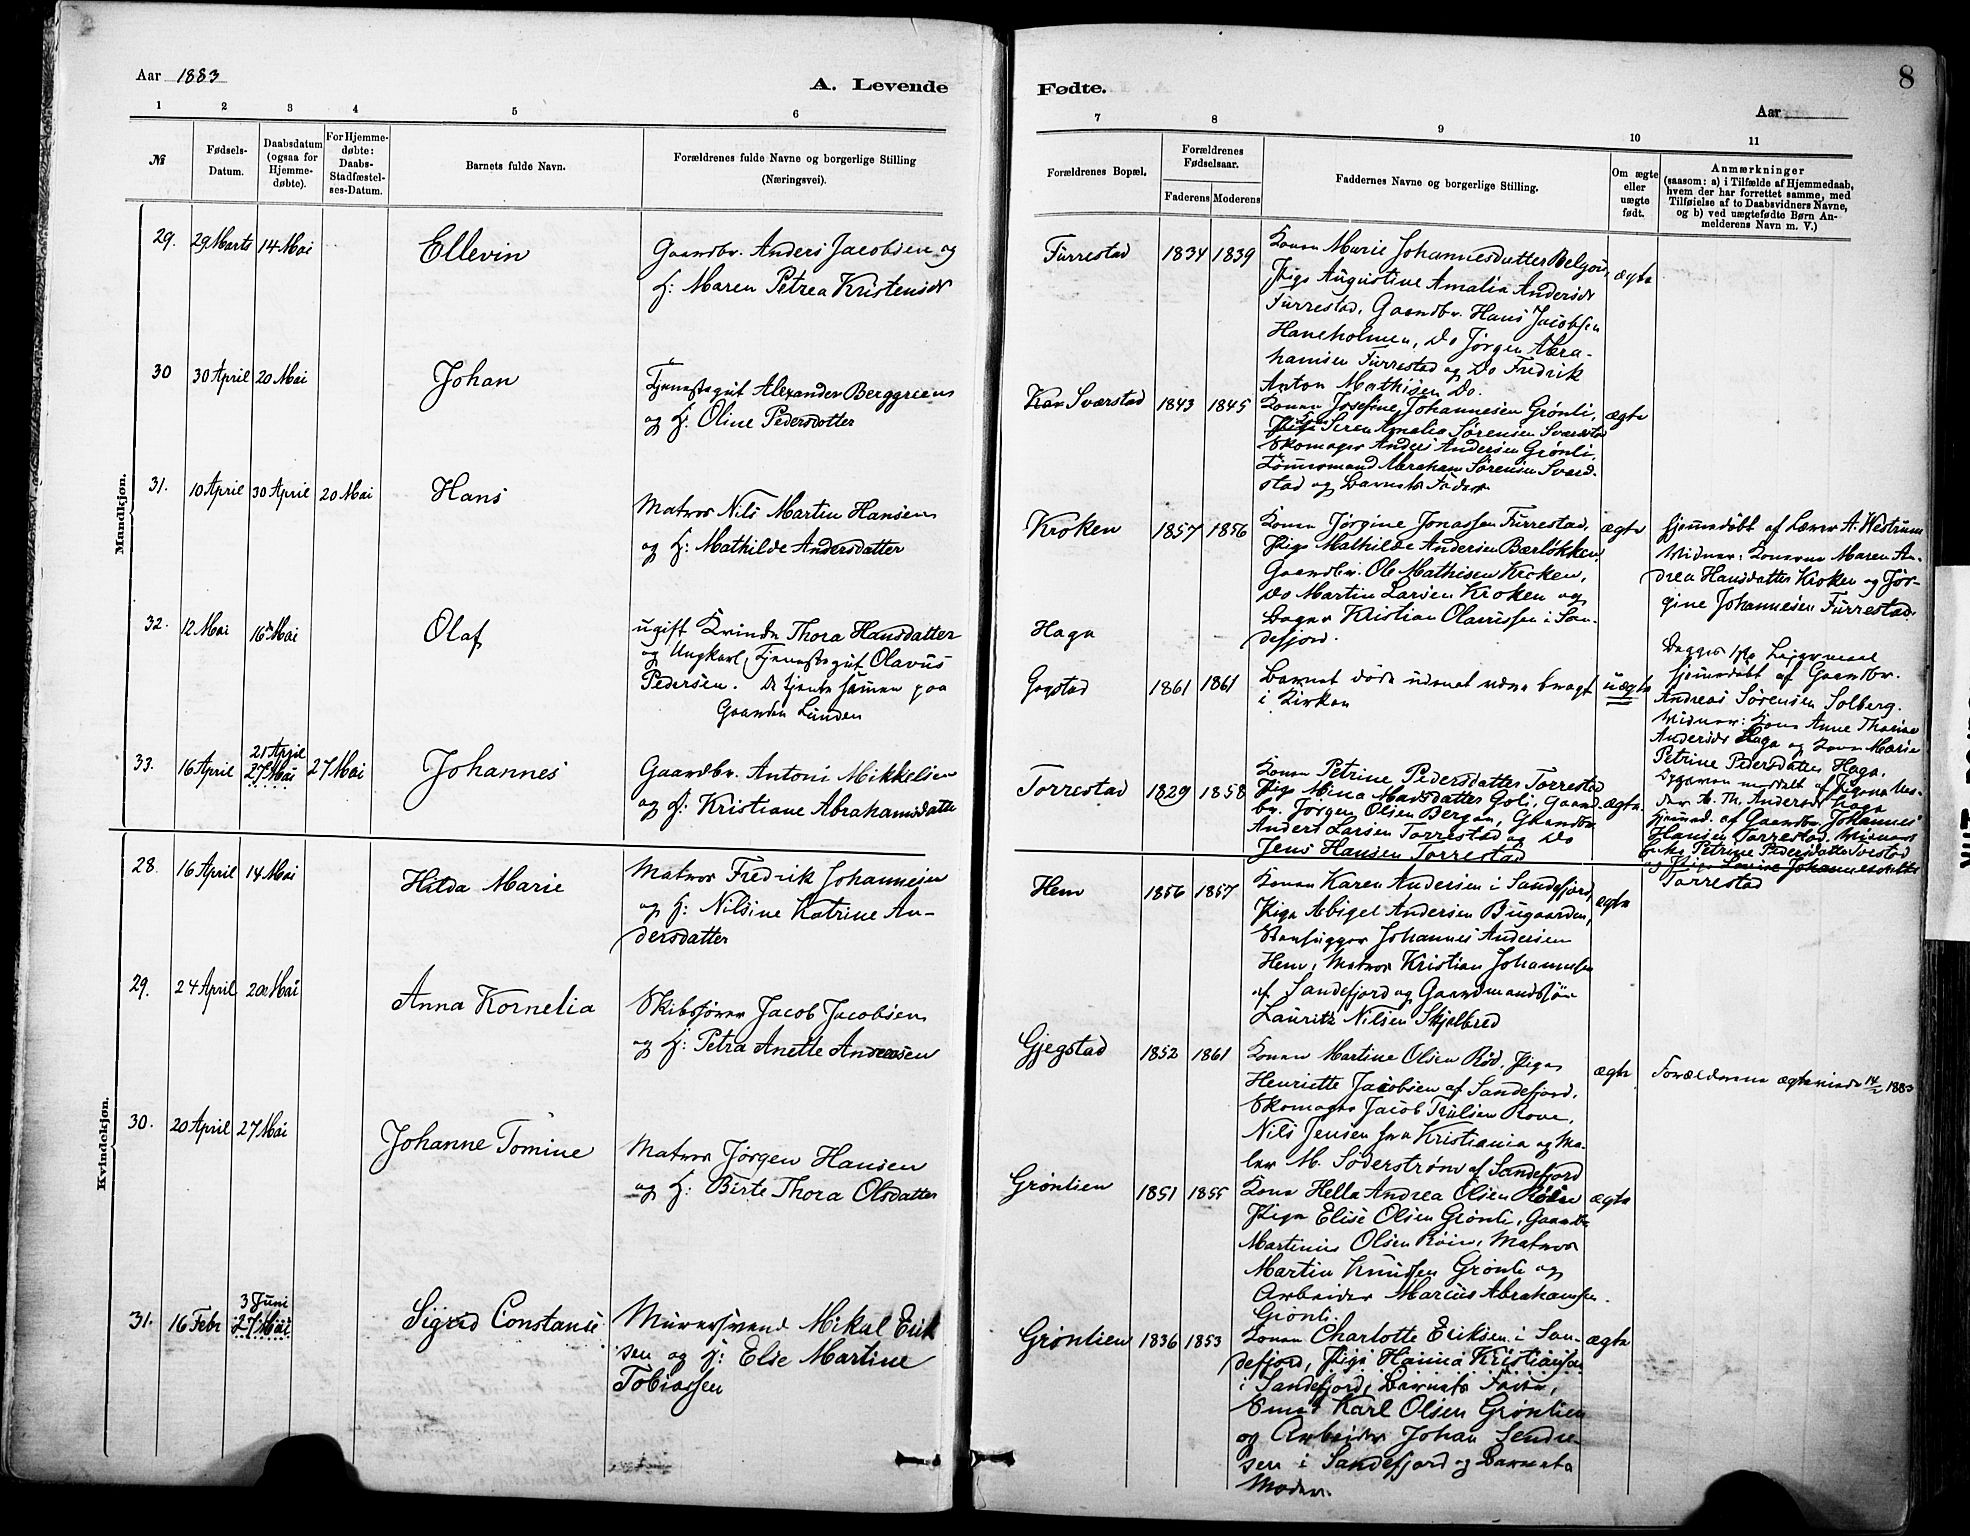 Aar 1883
A. Levende
1 2 3 4 5 6
№
Fødsels-
Datum.
Daabsdatum
(ogsaa for
Hjemme-
døbte).
For Hjemme-
døbte:
Daabs-
Stadfæstel-
ses-Datum.
Barnets fulde Navn.
Forældrenes fulde Navne og borgerlige Stilling
(Næringsvei).
Mandkjøn.
29. 29 Marts 14 Mai Ellevin
Gaardbr. Anders Jacobsen og
H: Maren Petrea Kristensdr
30 30 April 20 Mai Johan
Tjenestegut Alexander Berggreens
og H. Oline Pedersdatter
31. 10 April 30 April 20 Mai Hans
Matros Nils Martin Hansen
og H: Mathilde Andersdatter
32. 12 Mai 16 Mai Olaf
ugift Kvinde Thora Hansdatter
og Ungkarl, Tjenestegut Olavus
Pedersen. De tjente sammen paa
Gaarden Lunden
33. 16 April 21 April
27 Mai 27 Mai Johannes
Gaardbr. Antoni Mikkelsen
og H: Kristiane Abrahamsdatter
Kvindekjøn.
28. 16 April 14 Mai Hilda Marie
Matros Fredrik Johannesen
og H: Nilsine Katrine An-
dersdatter
29. 24 April 20 Mai Anna Kornelia
Skibsfører Jacob Jacobsen
og H: Petra Anette Andersen
30. 20 April 27 Mai Johanne Tomine
Matros Jørgen Hansen
og H: Birte Thora Olsdatter
31. 16 Febr 3 Juni
27 Mai Sigrid Constanse
Murersvend Mikal Erik
sen og H: Elise Martine
Tobiassen
Fødte.
8
Aar
7 8 9 10 11
Forældrenes Bopæl.
Forældrenes
Fødselsaar.
Faderens Moderens
Faddernes Navne og borgerlige Stilling.
Om ægte
eller
uægte
født.
Anmærkninger
(saasom: a) i Tilfælde af Hjemmedaab,
hvem der har forrettet samme, med
Tilføielse af to Daabsvidners Navne,
og b) ved uægtefødte Børn An-
melderens Navn m. V.)
Furrestad 1834 1839
Konen Marie Johannesdatter
Pige Augustine Amalia Andersdr
Furrestad, Gaardbr. Hans Jacobsen
Haneholmen, Do Jørgen Abra-
hamsen Furrestad og Do Fredrik
Anton Mathisen Do.
ægte
Sværstad 1843 1845
Konen Josefine Johannesen Grønli,
Siren Amalia Sørensen Sværstad
Skomager Anders Andersen Grønli,
Tømmermand Abraham Sørensen Svær-
stad og Barnets Fader
ægte
Kroken 1857 1856
Konen Jørgine Jonassen Furrestad,
Pige Mathilde Andersen Bærløkken,
Gaardbr. Ole Mathisen Kroken,
Do Martin Larsen Kroken og
Bager Kristian Olaussen i San-
defjord.
ægte
Hjemmedøbt af Lærer A. Westrum
Vidner: Konerne Maren An-
drea Hansdatter Kroken og Jør-
gine Johannesen Furrestad.
Haga
Gogstad 1861 1861
Barnet døde uden at være bragt
i Kirken
uægte
Hjemmedøbt af Gaardbr.
Andreas Sørensen Solberg.
Vidner: Kone Anne Thorine
Andersdr Haga og Kone Maren
Petrine Pedersdatter Haga.
Torrestad 1829 1858
Konen Petrine Pedersdatter Torrestad
Pige Mina Madsdatter Goli, Gaard-
br. Jørgen Olsen Bergan, Gaardbr.
Anders Larsen Torrestad og Do
Jens Hansen Torrestad
ægte
Hjemmed. af Gaardbr. Johannes
Hansen Torrestad. Vidner
Petrine Pedersdatter Torrestad
og Pige Lovise Johannesdatter
Torrestad
Hem 1856 1857
Konen Karen Andersen i Sandefjord,
Pige Abigel Andersen Bugaarden,
Stenhugger Johannes Andersen
Hem, Matros Kristian Johannesen
af Sandefjord og Gaardmandssøn
Lauritz Nilsen Skjelbred
ægte
Gjegstad 1852 1861
Konen Martine Olsen Rød, Pige
Henriette Jacobsen af Sandefjord,
Skomager Jacob Trulsen Rove,
Nils Jensen fra Kristiania og Ma-
ler M. Söderstrøm af Sandefjord
ægte
Forældrene ægteviede 14/1 1883
Grønlien 1851 1855
Kone Hella Andrea Olsen
Pige Elise Olsen Grønli, Gaardbr.
Martinius Olsen Røin, Matros
Martin Knudsen Grønli og
Arbeider Marius Abrahamsen
Grønli.
ægte
Grønlien 1836 1853
Konen Charlotte Eriksen i San-
defjord, Pige Hanna Kristiansen
i Sandefjord, Barnets Fader,
Karl Olsen Grønlien
og Arbeider Johan Sendre-
sen i Sandefjord og Barnets
Moder.
ægte